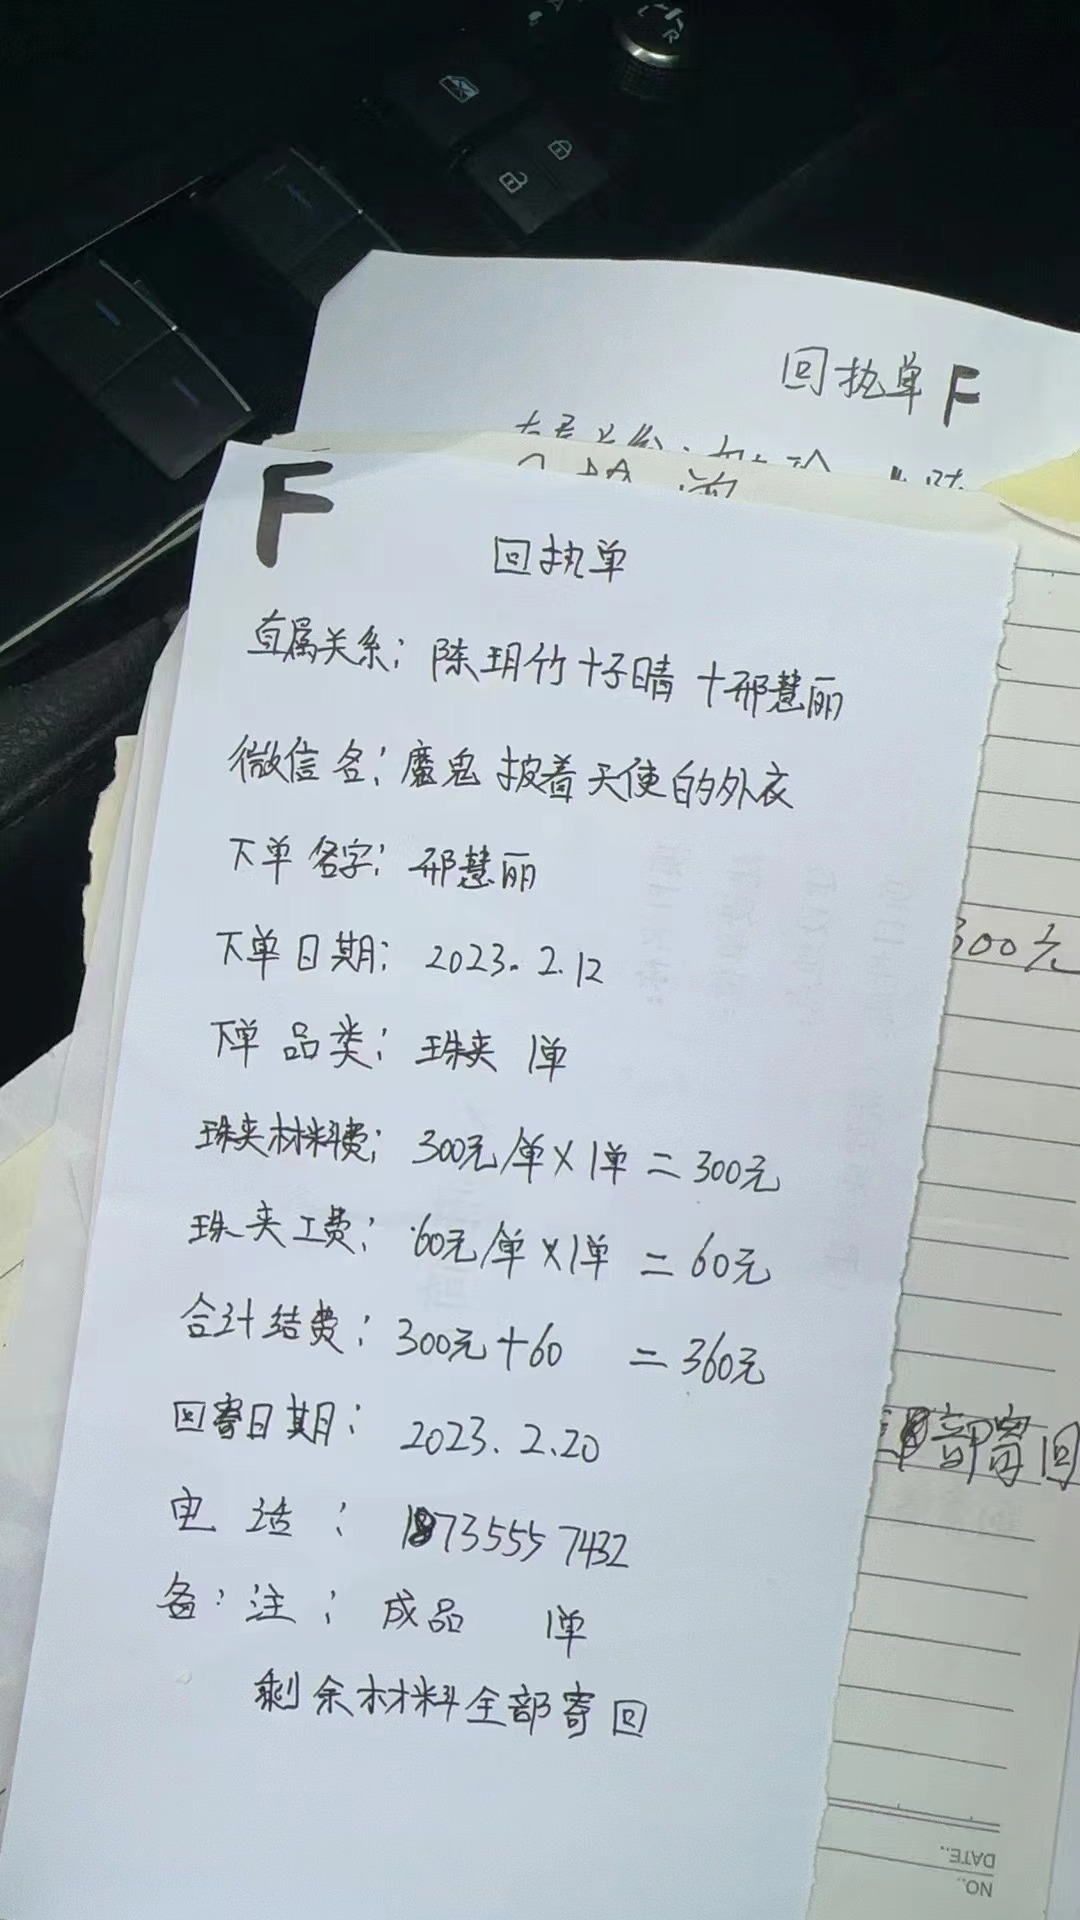 回执单 F
F
回执单
直属关系：陈玥竹+子晴+邢慧丽
微信名：魔鬼披着天使的外衣
下单名字：邢慧丽
下单日期：2023.2.12
下单品类：珠夹 1单
珠夹材料费：300元/单×1单=300元
珠夹工费：60元/单×1单=60元
合计结费：300元+60 =360元
回寄日期：2023.2.20
电话：18735557432
备注：成品 1单
剩余材料全部寄回
300元
部寄回
DATE.
NO.